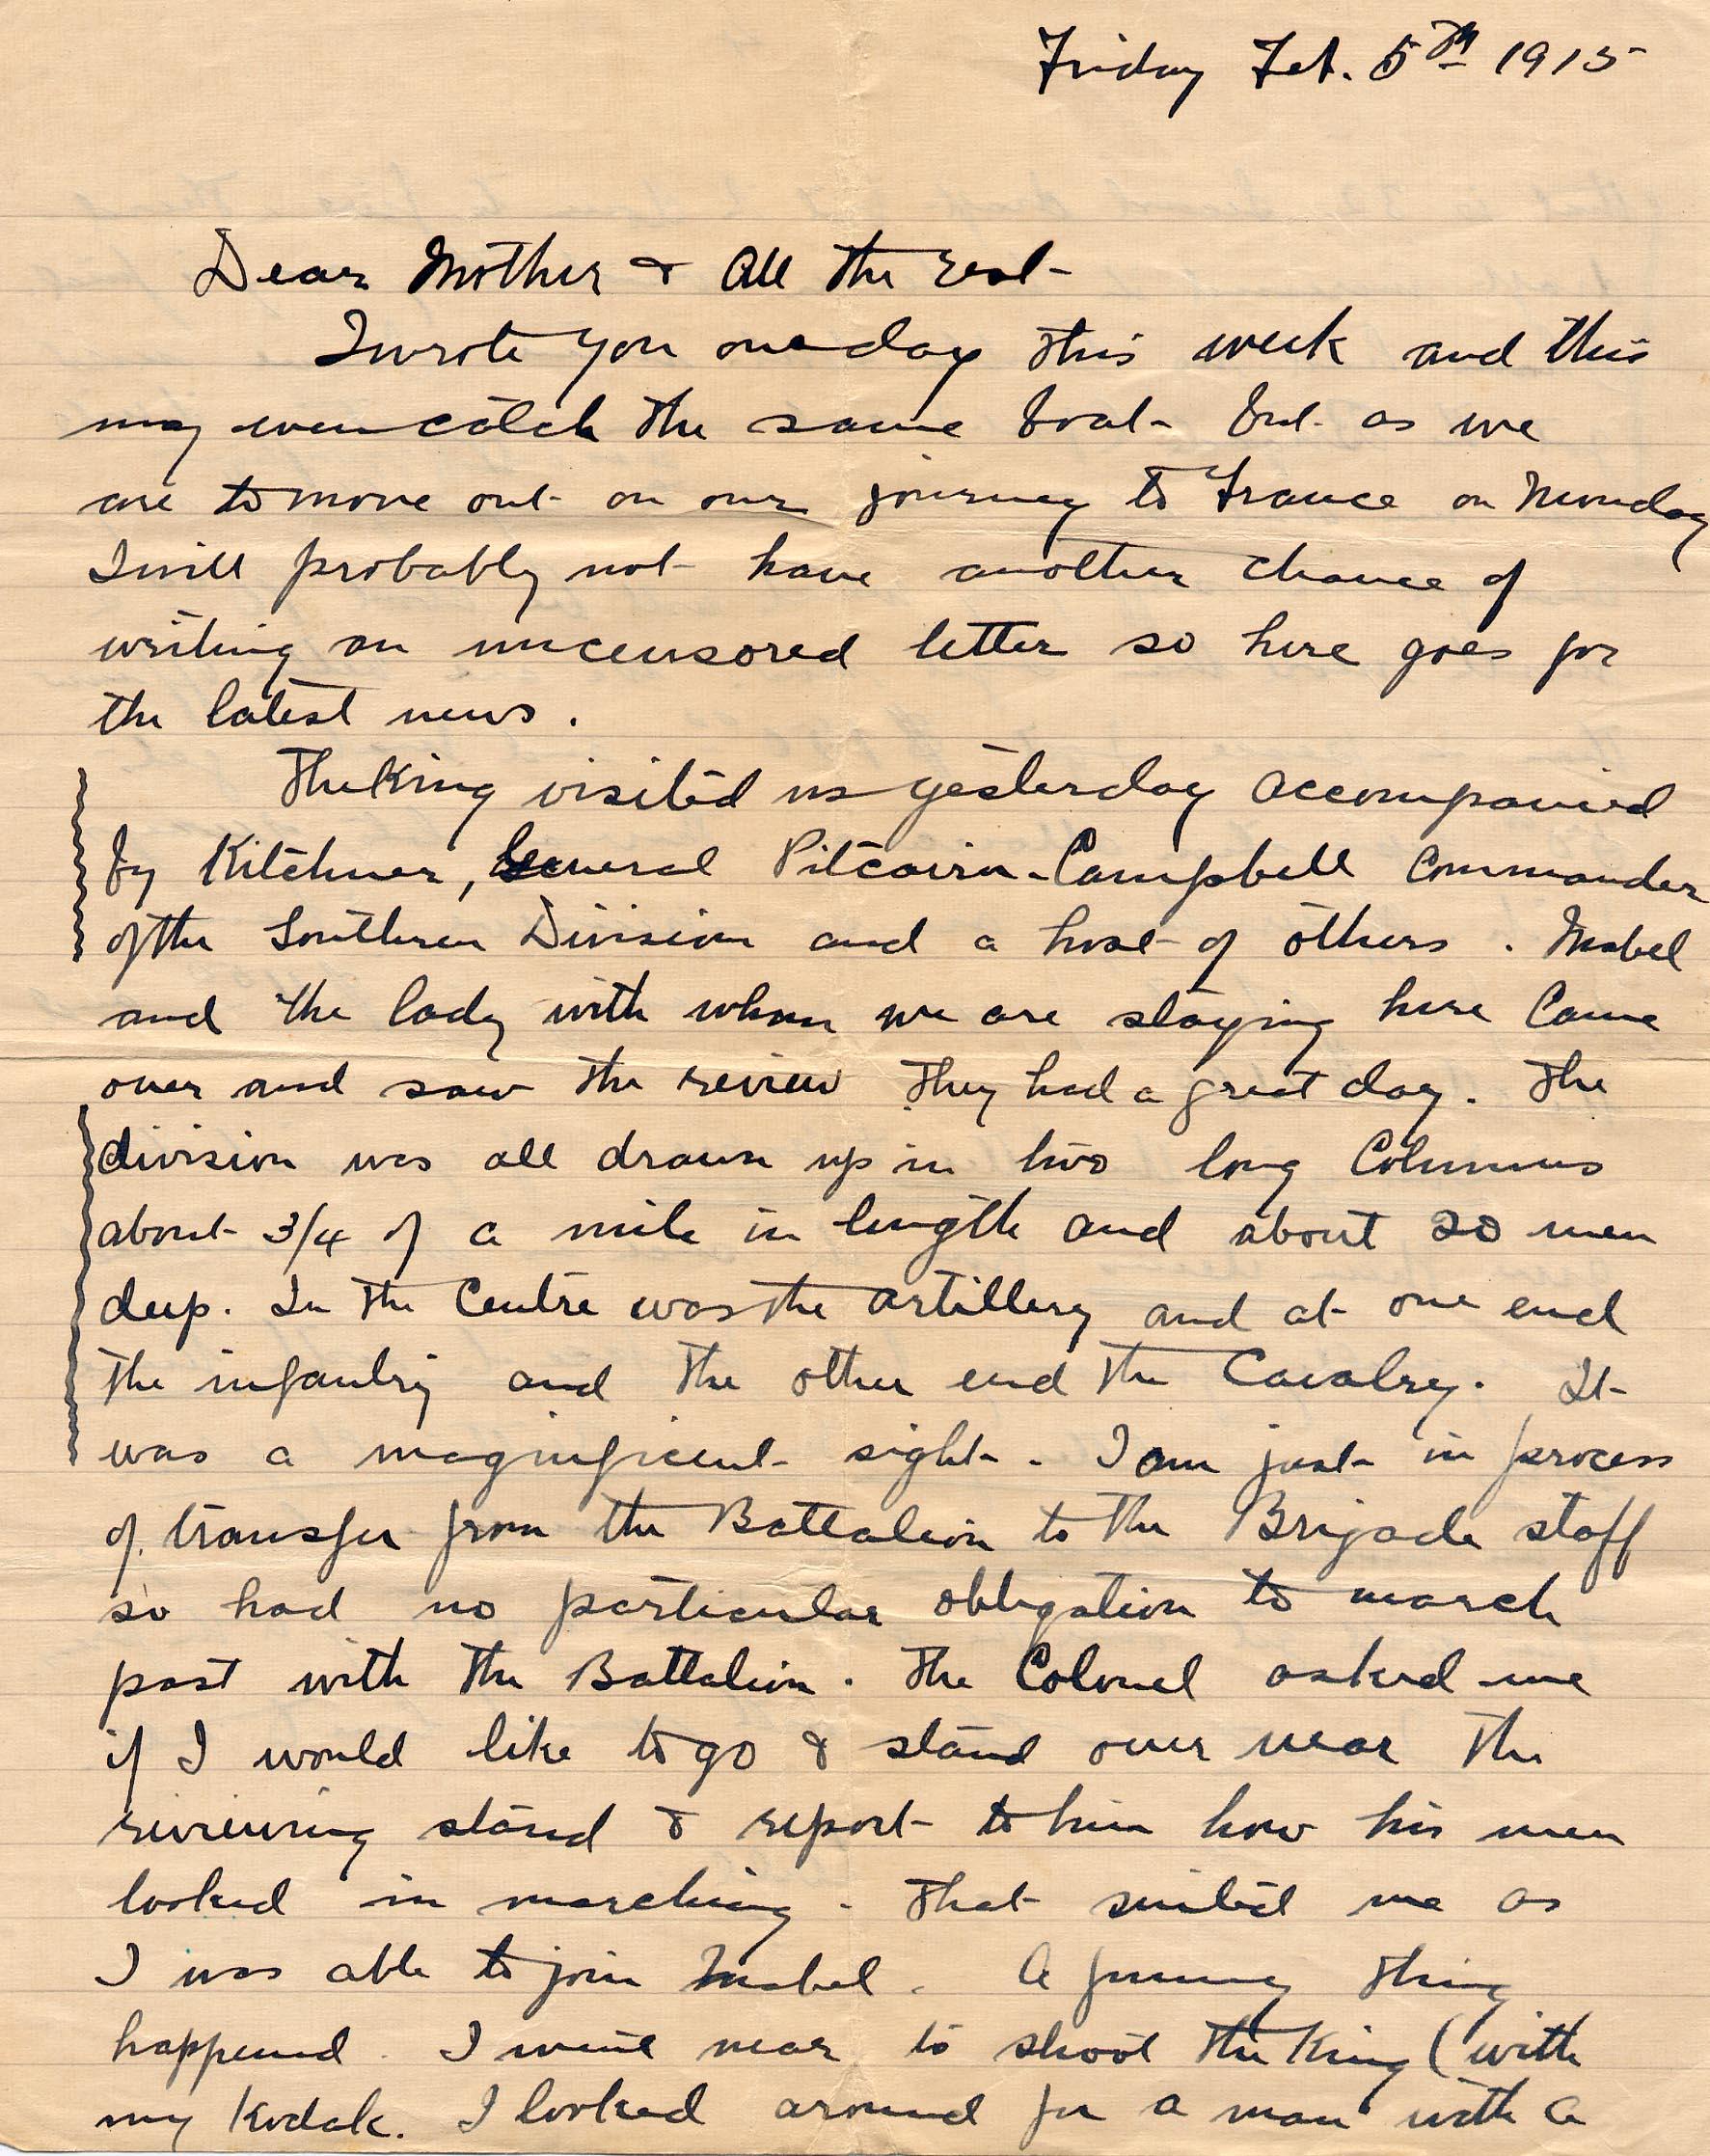 Friday Feb. 5th 1915
Dear Mother & All the rest-
I wrote you one day this week and this
may even catch the same boat but as we
are to move out on our journey to France on Monday
I will probably not have another chance of
writing an uncensored letter so here goes for
the latest news.
The King visited us yesterday accompanied
by Kitchner, General Pitcairn-Campbell Commander
of the Southern Division and a host of others. Mabel
and the lady with whom we are staying here came
over and saw the review. They had a great day. The
division was all drawn up in two long Columns
about 3/4 of a mile in length and about 20 men
deep. In the Centre was the artillery and at one end
the infantry and the other end the Cavalry. It
was a magnificent sight. I am just in process
of transfer from the Battalion to the Brigade staff
so had no particular obligation to march
past with the Battalion. The Colonel asked me
if I would like to go & stand over near the
reviewing stand & report to him how his men
looked in marching. That suited me as
I was able to join Mabel. A funny thing
happened. I went near to shoot the King (with
my Kodak. I looked around for a man with a